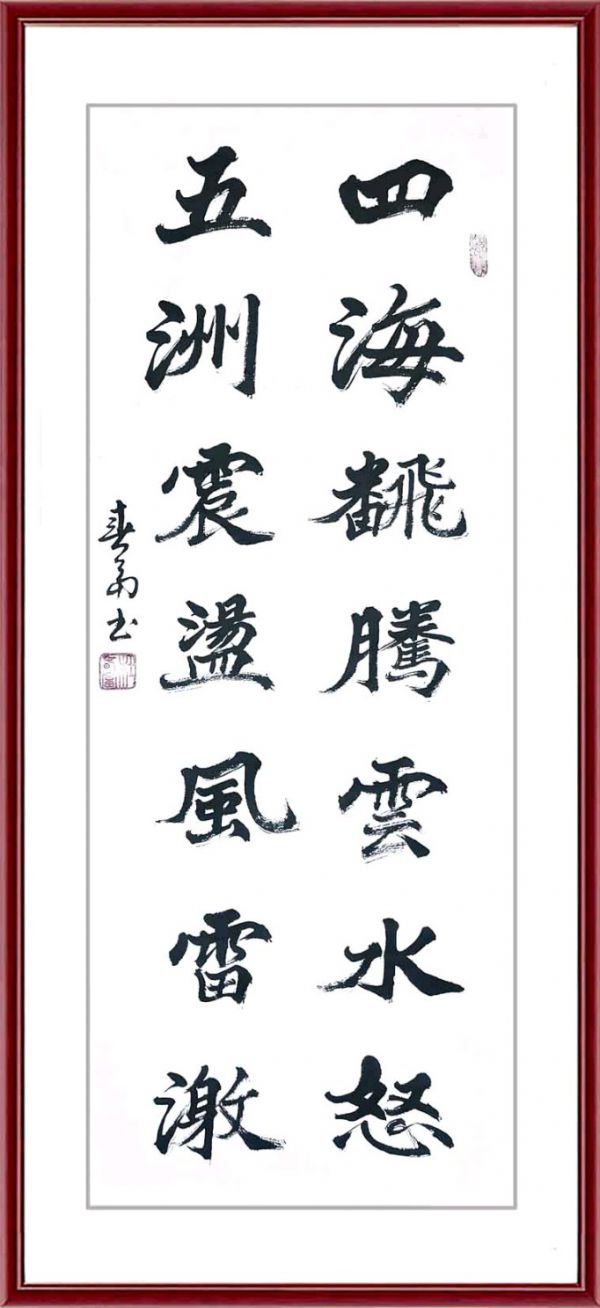 四海飜騰雲水怒
五洲震盪風雷激
春 书